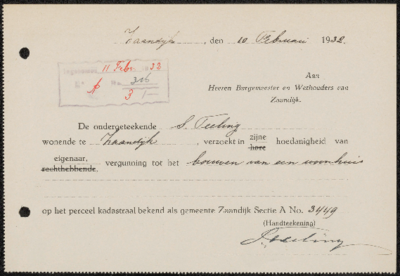 Zaandijk, den 10 Februari 1932.
11 Febr. 32
Aan
Heeren Burgemeester en Wethouders van
Zaandijk.
De ondergeteekende S. Teeling
wonende te Zaandijk, verzoekt in zijne hoedanigheid van
hare
eigenaar, vergunning tot het bouwen van een woonhuis
rechthebbende,
op het perceel kadastraal bekend als gemeente Zaandijk Sectie A No. 3449
(Handteekening)
S. Teeling